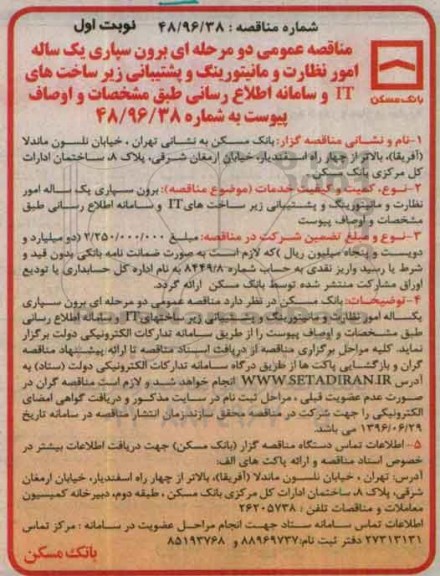 شماره مناقصه : ۴۸/۹۶/۳۸ نوبت اول
مناقصه عمومی دو مرحله ای برون سپاری یک ساله
امور نظارت و مانیتورینگ و پشتیبانی زیر ساخت های
IT و سامانه اطلاع رسانی طبق مشخصات و اوصاف
پیوست به شماره ۴۸/۹۶/۳۸
بانک مسکن
۱-نام و نشانی مناقصه گزار: بانک مسکن به نشانی تهران ، خیابان نلسون ماندلا
(آفریقا)، بالاتر از چهار راه اسفندیار، خیابان ارمغان شرقی، پلاک ۸، ساختمان ادارات
کل مرکزی بانک مسکن
۲-نوع، کمیت و کیفیت خدمات (موضوع مناقصه): برون سپاری یک ساله امور
نظارت و مانیتورینگ و پشتیبانی زیر ساخت های IT و سامانه اطلاع رسانی طبق
مشخصات و اوصاف پیوست
۳-نوع و مبلغ تضمین شرکت در مناقصه: مبلغ ۲/۲۵۰/۰۰۰/۰۰۰ (دو میلیارد و
دویست و پنجاه میلیون ریال )که لازم است به صورت ضمانت نامه بانکی بدون قید و
شرط یا رسید واریز نقدی به حساب شماره ۸۴۴۹/۸ به نام اداره کل حسابداری یا تودیع
اوراق مشارکت منتشر شده توسط بانک مسکن ارائه گردد.
۴-توضیحات: بانک مسکن در نظر دارد مناقصه عمومی دو مرحله ای برون سپاری
یکساله امور نظارت و مانیتورینگ و پشتیبانی زیر ساختهای IT و سامانه اطلاع رسانی
طبق مشخصات و اوصاف پیوست را از طریق سامانه تدارکات الکترونیکی دولت برگزار
نماید. کلیه مراحل برگزاری مناقصه از دریافت اسناد مناقصه تا ارائه پیشنهاد مناقصه
گران و بازگشایی پاکت ها از طریق درگاه سامانه تدارکات الکترونیکی دولت (ستاد) به
آدرس WWW.SETADIRAN.IR انجام خواهد شد و لازم است مناقصه گران در
صورت عدم عضویت قبلی ، مراحل ثبت نام در سایت مذکور و دریافت گواهی امضای
الکترونیکی را جهت شرکت در مناقصه محقق سازند.زمان انتشار مناقصه در سامانه تاریخ
۱۳۹۶/۰۶/۲۹ می باشد.
۵-اطلاعات تماس دستگاه مناقصه گزار (بانک مسکن) جهت دریافت اطلاعات بیشتر در
خصوص اسناد مناقصه و ارائه پاکت های الف:
آدرس: تهران ، خیابان نلسون ماندلا (آفریقا)، بالاتر از چهار راه اسفندیار، خیابان ارمغان
شرقی، پلاک ۸، ساختمان ادارات کل مرکزی بانک مسکن ، طبقه دوم، دبیرخانه کمیسیون
معاملات و مناقصات تلفن : ۲۶۲۰۵۷۳۸
اطلاعات تماس سامانه ستاد جهت انجام مراحل عضویت در سامانه : مرکز تماس
۲۷۳۱۳۱۳۱ دفتر ثبت نام:۸۸۹۶۹۷۳۷ و ۸۵۱۹۳۷۶۸
بانک مسکن